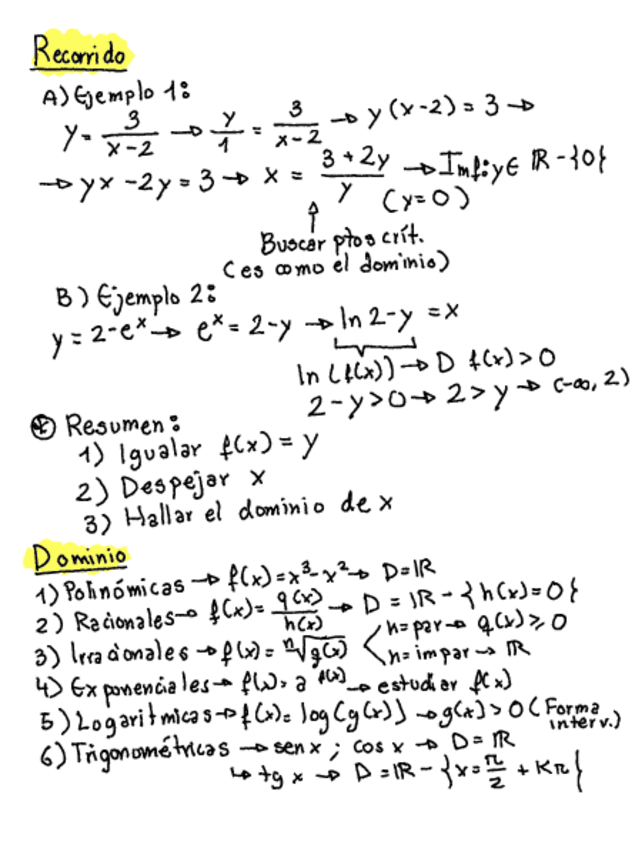 Recorrido
A) Ejemplo 1:
y = 3/(x-2) → y/1 = 3/(x-2) → y(x-2) = 3 →
→ yx - 2y = 3 → x = (3+2y)/y → Imf: y ∈ ℝ - {0}
(y=0)
↑
Buscar ptos crít.
(es como el dominio)
B) Ejemplo 2:
y = 2-eˣ → eˣ = 2-y → ln 2-y = x
ln(f(x)) → D f(x) > 0
2-y>0 → 2>y → (-∞, 2)
* Resumen:
1) Igualar f(x) = y
2) Despejar x
3) Hallar el dominio de x
Dominio
1) Polinómicas → f(x) = x³-x² → D=ℝ
2) Racionales → f(x) = g(x)/h(x) → D = ℝ - {h(x)=0}
3) Irracionales → f(x) = ⁿ√g(x) < n=par → g(x) ≥ 0
n=impar → ℝ
4) Exponenciales → f(x) = a^f(x) → estudiar f(x)
5) Logarítmicas → f(x) = log(g(x)) → g(x) > 0 (Forma interv.)
6) Trigonométricas → sen x ; cos x → D=ℝ
↳ tg x → D=ℝ - {x = π/2 + Kπ}